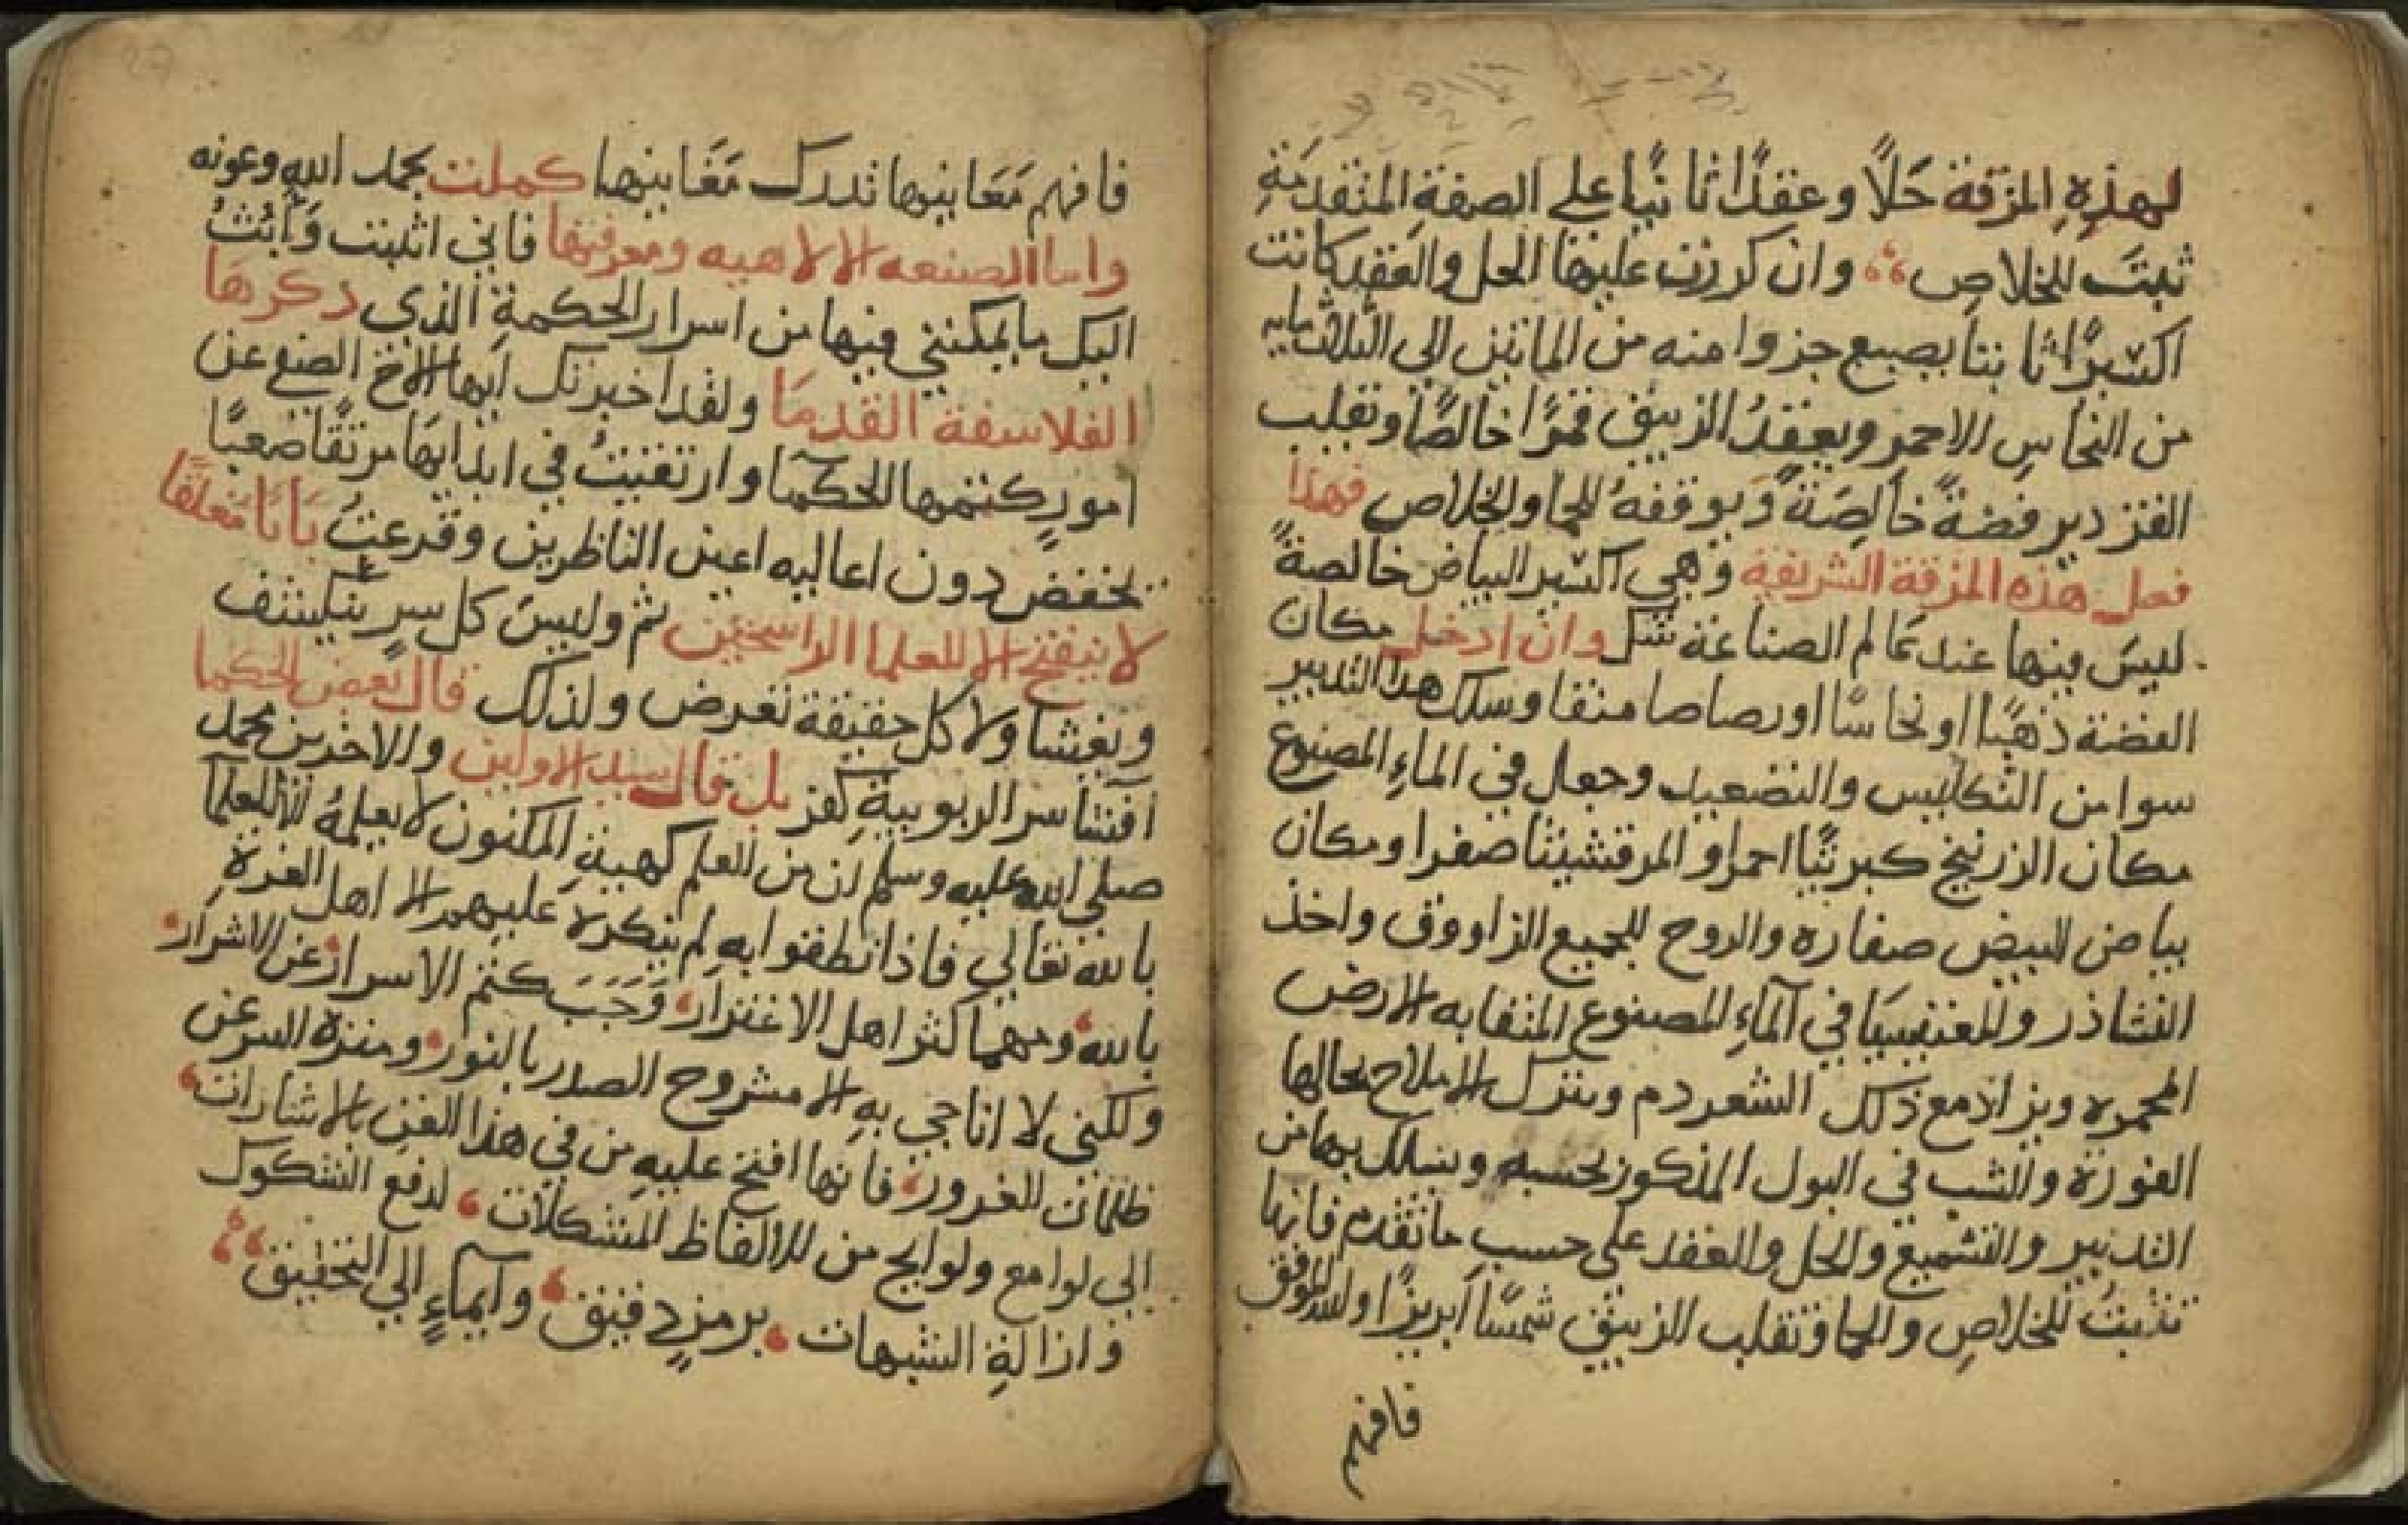 لهذه المزقة حَلًا وعقدًا ثانيًا علي الصفة المتقدمَة
ثبتَت للخلاصِ وان كررت عليها الحل والعَقد كانت
اكسيرًا ثابتا يصبع جزوا منه من الماتين الي الثلاثمايه
من النحاسِ الاحمر ويعقدُ الزيبق قمرًا خالصًا وتقلب
القزدير فضةً خالصَةً وَيوقفهُ للحما والخلاص فهذا
فعل هذه المزقة الشريفة وَهي اكسير البياض خالصةً
ليسَ فيها عند عَالم الصناعَة شك وان ادخل مكان
الفضة ذهبًا او نحاسًا او رصاصا منقا وسلك هذا التدبير
سوا من التكليس والتصعيد وجعل في الماءِ المصنوع
مكان الزرنيخ كبريتًا احمرا والمرقشيثا صفرا ومكان
بياض البيض صفاره والروح للجميع الزاووق واخذ
النشاذر والمغنيسيَا في المآءِ المصنوع المنقا به الارض
المحمره ويزاد مع ذلك الشعر دم ويترك الاملاح بحالها
الفورة والشب في البول المذكور بحسبه ويسلك بها من
التدبير والتشميع والحل والعقد على حسبِ ماتقدم فانها
تثبتُ للخلاصِ والحما وتقلب الزيبق شمسًا ابريزًا والله الموفق
فافهم
فافهم مَعَانيها تدرك مَغَانيها كملت بحمد الله وعونه
واما الصنعه الالاهيه ومعرفتها فاني اثبت وَابُثُ
اليك ما يمكنني فيها من اسرار الحكمةِ الذي ذكرهَا
الفلاسفة القدمَا ولقد اخبرتك ايها الاخ الصنع عن
امورٍ كتمها الحكما وارتقيتُ في ابدايهَا مرتقًا صَعبًا
تخفض دون اعاليه اعين الناظرين وقرعتُ بَابًا مَغلقًا
لا ينفتح الا للعلما الراسخين ثم وليسَ كل سرٍ ينكشف
ويفشا ولا كل حقيقة تعرض ولذلك قال بعض الحكما
افشا سر الربوبيةِ كفر بل قال سيد الاولين والاخرين محمد
صلى الله عليه وسلم ان من العلم كهيئةِ المكنون لا يعلمهُ الا العلما
بالله تعالي فاذا نطقوا به لم ينكره عَليهم الا اهل الغرة
بالله ومهما كثر اهل الاغترار وَجَبَ كتم الاسرار عن الاشرار
ولكني لا اناجي بهِ الا مشروح الصدر بالنور ومنزه السر عن
ظلمات الغرور فانها افتح عليه من في هذا الفن بالاشارات
الى لوامع ولوايح من الالفاظ المشكلات لدفع الشكوك
وازالةِ الشبهات برمزٍ دقيق وآيماءٍ الي التحقيق